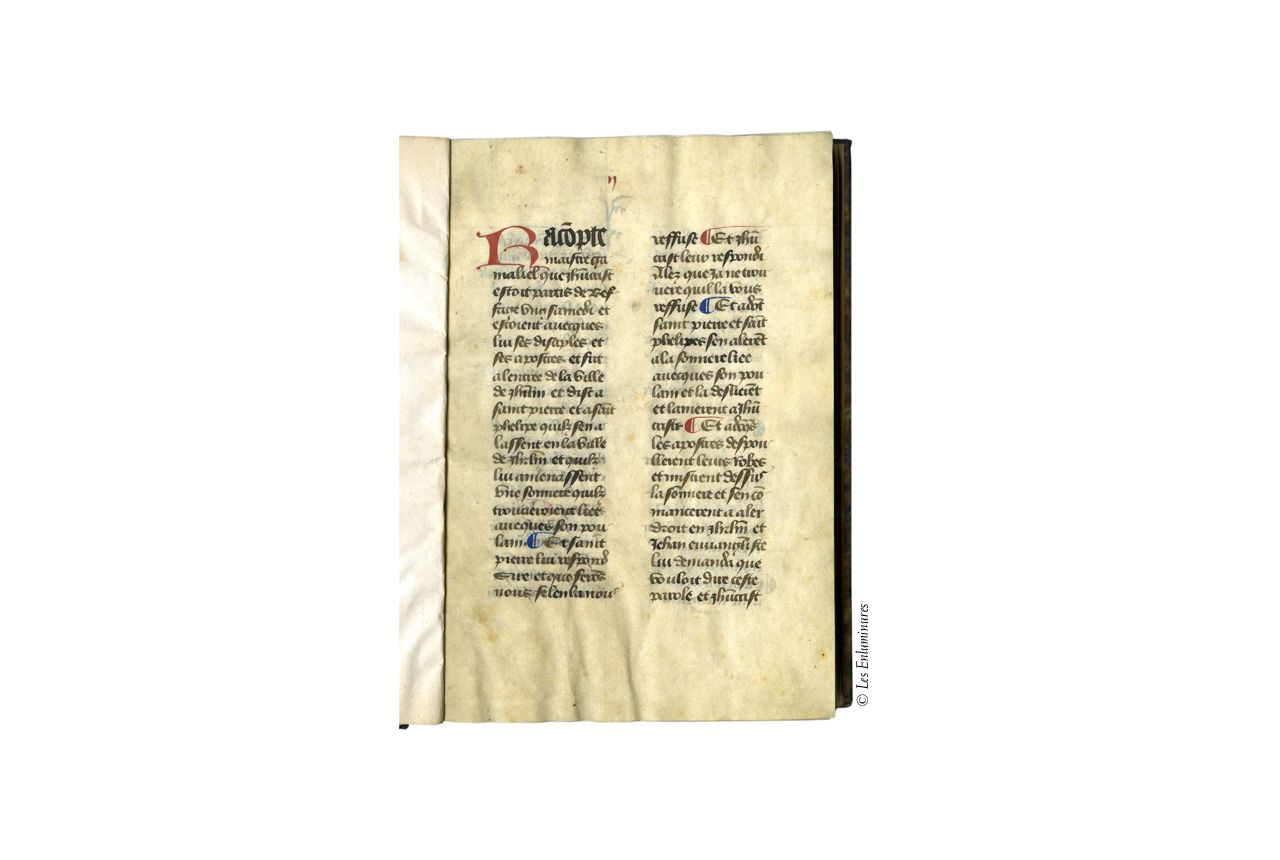 n
Racõpte
maistre ga
maliel que jhũcrist
estoit partis de Bef
fage vng samedi et
estoient auecques
lui ses disciples et
ses apostres et fut
a lentree de la ville
de jhrlm et dist a
saint pierre et a sait
phelipe quilz sen a
lassent en la ville
de jhrlm et quilz
lui amenassent
vne sonniere quilz
trouueroient liee
auecques son pou
lam ¶ Et saint
pierre lui respond
Sire et que ferõs
nous se len la nous
reffuse ¶ Et jhũ
crist leur respondi
Alez que ja ne trou
uere qui la vous
reffuse ¶ Et adõt
saint pierre et sait
phelipes sen alerẽt
a la sonniere liee
auecques son pou
lam et la deslierẽt
et lamerent a jhũ
crist ¶ Et adõs
les apostres despou
llerent leurs robes
et mistrent dessus
la sonniere et sen cõ
mancerent a aler
droit en jhrlm et
Jehan euuangliste
lui demanda que
vouloit dire ceste
parole et jhũcrist
© Les Enluminures